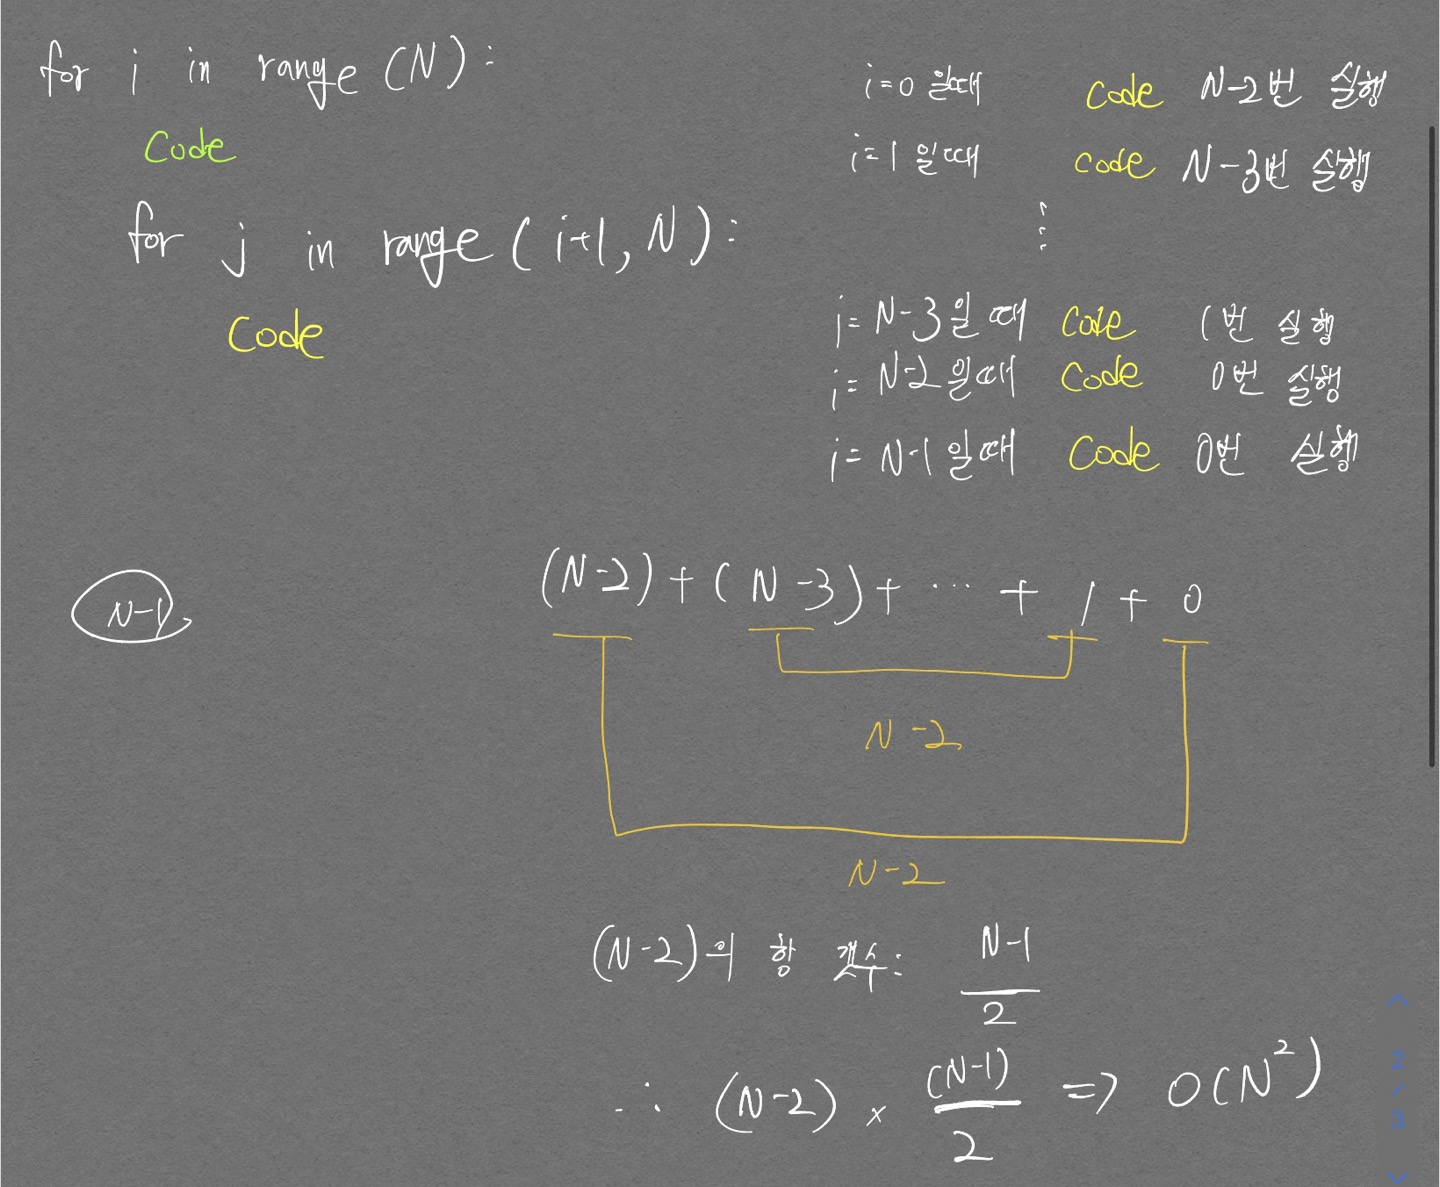 for i in range (N):
Code
for j in range ( i+1, N ):
Code
i=0 일때 Code N-2번 실행
i=1 일때 code N-3번 실행
⋮
i= N-3일 때 Code 1번 실행
i= N-2일때 Code 0번 실행
i= N-1일때 Code 0번 실행
N-1
(N-2) + (N-3) + ... + 1 + 0
N-2
N-2
(N-2)의 항 갯수: (N-1)/2
∴ (N-2) × (N-1)/2 => O(N²)
2/3